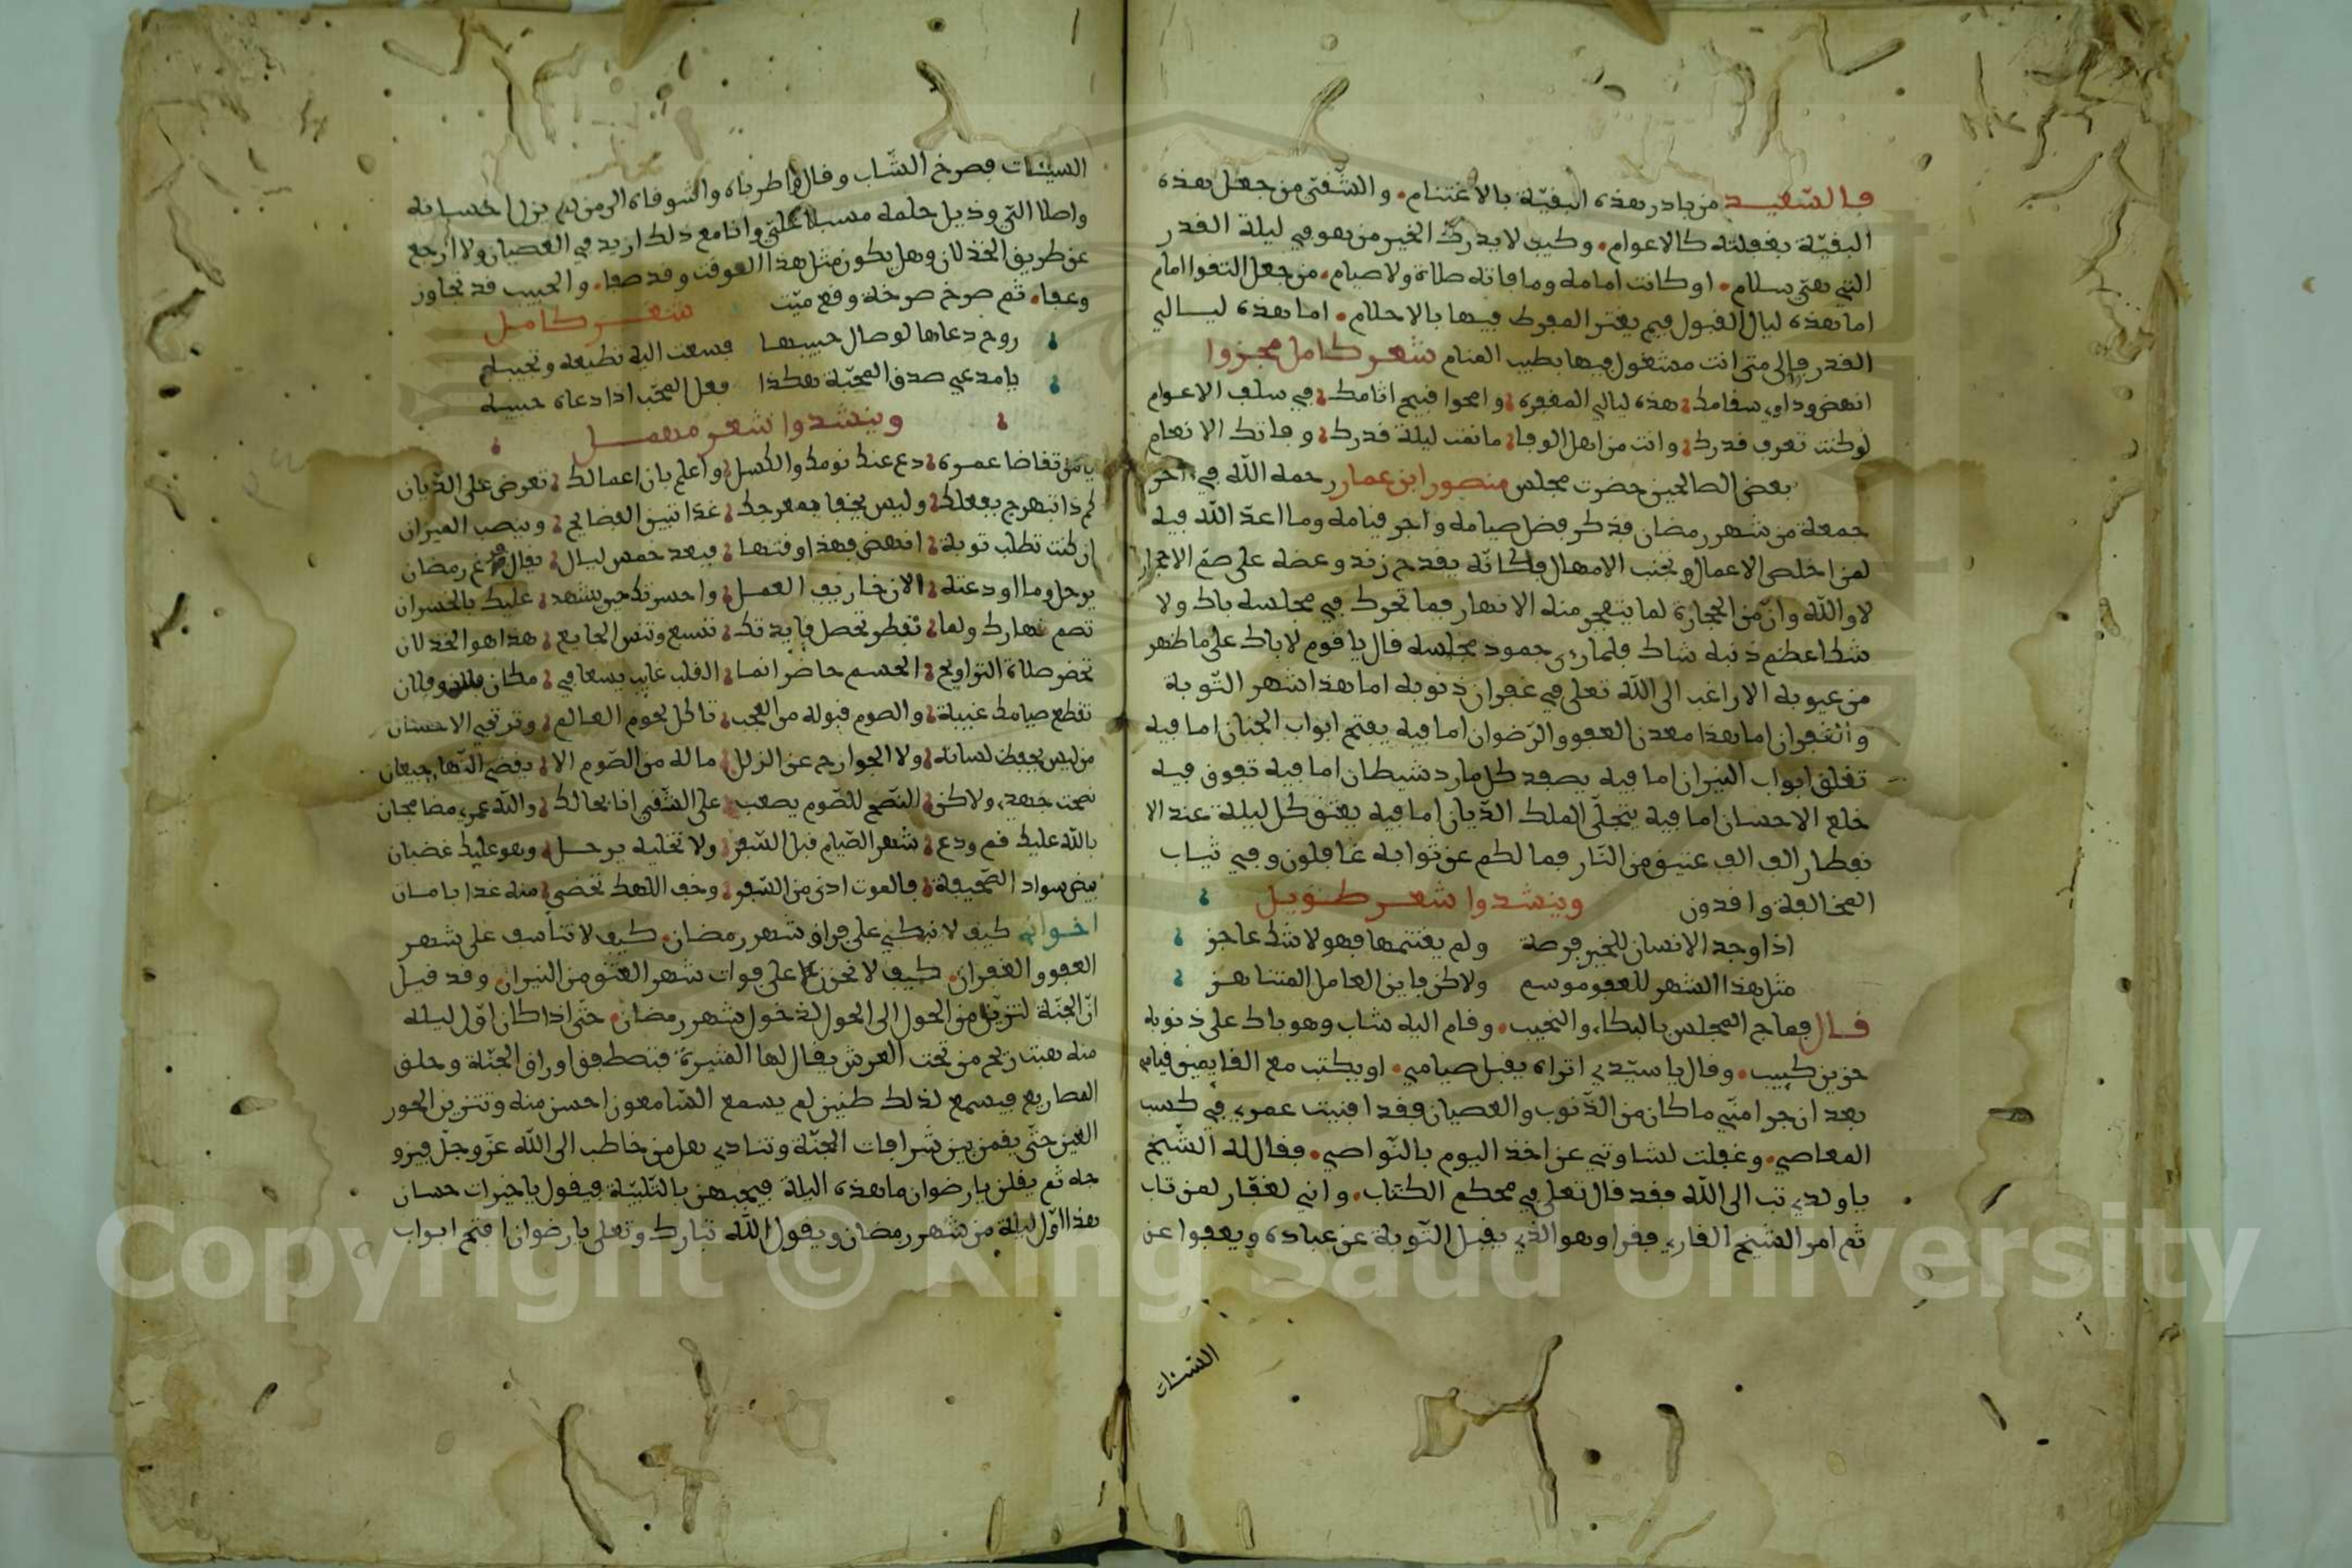 فالسّعيد من بادر هذه البقيّة بالاغتنام والشّقي من جعل هذه
البقيّة بغفلته كالاعوام وكيف لا يدرك الخير من هو في ليلة القدر
التي هي سلام او كانت امامه وما فاته صلاة ولا صيام من جعل التقوا امام
اما هذه ليال القبول فيم يغتر المفرط فيها بالاحلام اما هذه ليالي
القدر فالى متى انت مشغول فيها بطيب المنام شعر كامل مجزوا
انهض وداوي سقامك هذه ليالي المغفرة وامحوا قبيح اثامك في سالف الاعوام
لو كنت تعرف قدرك وانت من اهل الوفا ما نمت ليلة قدرك وفاتك الانعام
بعض الصالحين حضرت مجلس منصور ابن عمار رحمه الله في اخر
جمعة من شهر رمضان فذكر فضل صيامه واجر قيامه وما اعدّ الله فيه
لمن اخلص الاعمال وتجنب الامهال فكانّه يقدح زند وعضه على صمّ الاحجار
لا والله وانّ من الحجارة لما يتفجر منه الانهار فما تحرك في مجلسه باك ولا
شكا عظم ذنبه شاك فلما رءى جمود مجلسه قال يا قوم لا باك على ما ظهر
من عيوبه الا راغب الى الله تعلى في غفران ذنوبه اما هذا شهر التّوبة
والغفران اما هذا معدن العفو والرّضوان اما فيه يفتح ابواب الجنان اما فيه
تغلق ابواب النيران اما فيه يصفد كل مارد شيطان اما فيه تفرق فيه
خلع الاحسان اما فيه يتجلّى الملك الدّيان اما فيه يعتق كل ليلة عند الا
فطار الف الف عتيق من النّار فما لكم عن ثوابه غافلون وفي ثياب
المخالفة وافدون وينشدوا شعر طويل
اذا وجد الانسان للخير فرصة ولم يغتنمها فهو لا شك عاجز
مثل هذا الشهر للعفو موسم ولاكن فاين العامل المتناهز
قال فماج المجلس بالبكاء والنحيب وقام اليه شاب وهو باك على ذنوبه
حزين كييب وقال يا سيّدي اتراه يقبل صيامي او يكتب مع القايمين قيامي
بعد ان جرا منّي ما كان من الذّنوب والعصيان فقد افنيت عمري في كسب
المعاصي وغفلت لشاوتي عن اخذ اليوم بالنّواصي فقال له الشّيخ
يا ولدي تب الى الله فقد قال تعلى في محكم الكتاب واني لغفّار لمن تاب
ثم امر الشيخ القاري فقرا وهو الذي يقبل التّوبة عن عباده ويعفوا عن
السّيّئات
السيئات فصرخ الشّاب وقال واطرباه واشوقاه الى من لم يزل احسانه
واصلا الّي وذيل حلمه مسبلا عليّ وانا مع ذلك ازيد في العصيان ولا ارجع
عن طريق الخذلان وهل يكون مثل هذا الوقت وقد صفا والحبيب قد تجاوز
وعفا ثم صرخ صرخة وقع ميّت شعر كامل
روح دعاها لوصال حبيبها فسعت اليه تطيعه وتجيبه
يا مدعي صدق المحبّة هكذا فعل المحّب اذا دعاه حبيبه
وينشدوا شعر مهمل
يا من تقاضا عمره دع عنك نومك والكسل واعلم بان اعمالك تعرض على الدّيان
كم ذا تبهرج بفعلك وليس يخفا بهرجك غدا تبين الفضايح وينصب الميزان
ان كنت تطلب توبة انهض فهذا وقتها فبعد خمس ليال يقال فرغ رمضان
يرحل وما اودعته الا زخاريف العمل واحسرتك حين يشهد عليك بالخسران
تصم نهارك ولما تفطر تحصل فايدتك تشبع وتنس الجايع هذا هو الخذلان
تحضر صلاة التراويح الجسم حاضر انما القلب غايب يسعا في مكان وفلان
تقطع صيامك غيبة والصوم قبوله من العجب تاكل لحوم العالم وترتجي الاحسان
من ليس يحفظ لسانه ولا الجوارح عن الزلل ما له من الصّوم الا يقضي النّهار جيعان
نصحت جهدي ولاكن النّصح للصّوم يصعب على الشّقي انا بحالك والله عمري مضا مجان
بالله عليك قم ودع شهر الصّيام قبل السّفر ولا تخليه يرحل وهو عليك غضبان
بيض سواد الصّحيفة فالموت ادنى من السّفر وخف الاهك تحضى منه غدا بامان
اخواني كيف لا نبكي على فراق شهر رمضان كيف لا نتأسف على شهر
العفو والغفران كيف لا نحزن على فوات شهر العتق من النيران وقد قيل
انّ الجنّة لتزيّن من الحول الى الحول لدخول شهر رمضان حتّى اذا كان اوّل ليله
منه هبت ريح من تحت العرش يقال لها المثيرة فتصطفق اوراق الجنّة وحلق
المصاريع فيسمع لذلك طنين لم يسمع السّامعون احسن منه وتتزين الحور
العين حتّى يقمن بين شرافات الجنّة وتنادي هل من خاطب الى الله عزّ وجلّ فيزو
جه ثم يقلن يا رضوان ما هذه اليلة فيجيبهن بالتّلبيّة فيقول يا خيرات حسان
هذا اوّل ليلة من شهر رمضان ويقول الله تبارك وتعلى يا رضوان افتح ابواب
Copyright © King Saud University